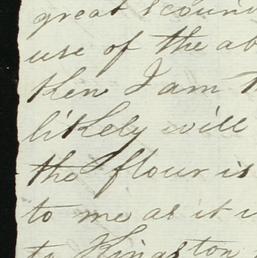 great scound
use of the ab
then I am
likely will
the flour is
to me as it
to Kingston